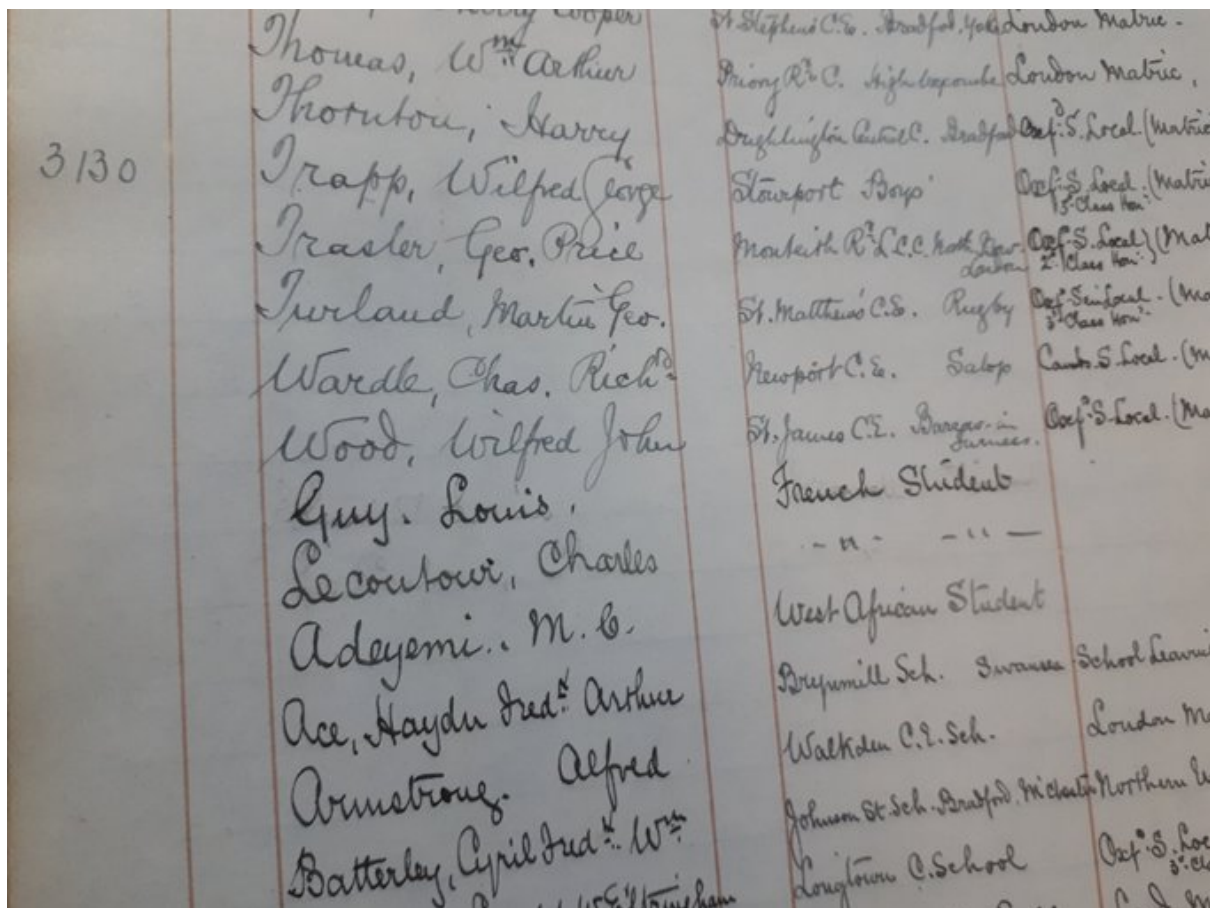 Cooper St Stephens C.E. Bradford, Yorks London Matric.
Thomas, Wm Arthur Priory Rd C. High Wycombe London Matric,
Thornton, Harry Drighlington Central C. Bradford Oxfd. S. Local (Matric
3130 Trapp, Wilfred George Stourport Boys' Oxf. S. Local. (Matric
3rd Class Hon.
Trasler, Geo. Price Monteith Rd L.C.C. North Bow Oxf. S. Local (Mat
London 2nd Class Hon.
Turland, Martin Geo. St. Matthew's C.E. Rugby Oxfd Sen Local. (Ma
3rd Class Hon.
Wardle, Chas. Richd Newport C.E. Salop Camb. S. Local. (M
Wood, Wilfred John St. James C.E. Barrow-in Oxfd. S. Local. (Ma
Furness.
Guy. Louis. French Student
Lecoutour, Charles - " - - " -
Adeyemi.. M. C. West African Student
Ace, Haydn Fredk Arthur Brynmill Sch. Swansea School Leavi
Armstrong. Alfred Walkden C.E. Sch. London M
Batterley, Cyril Fredk. Wm Johnson St. Sch. Bradford, Manchester Northern U
Longtown C. School Oxfd. S. Loc
3rd Cl